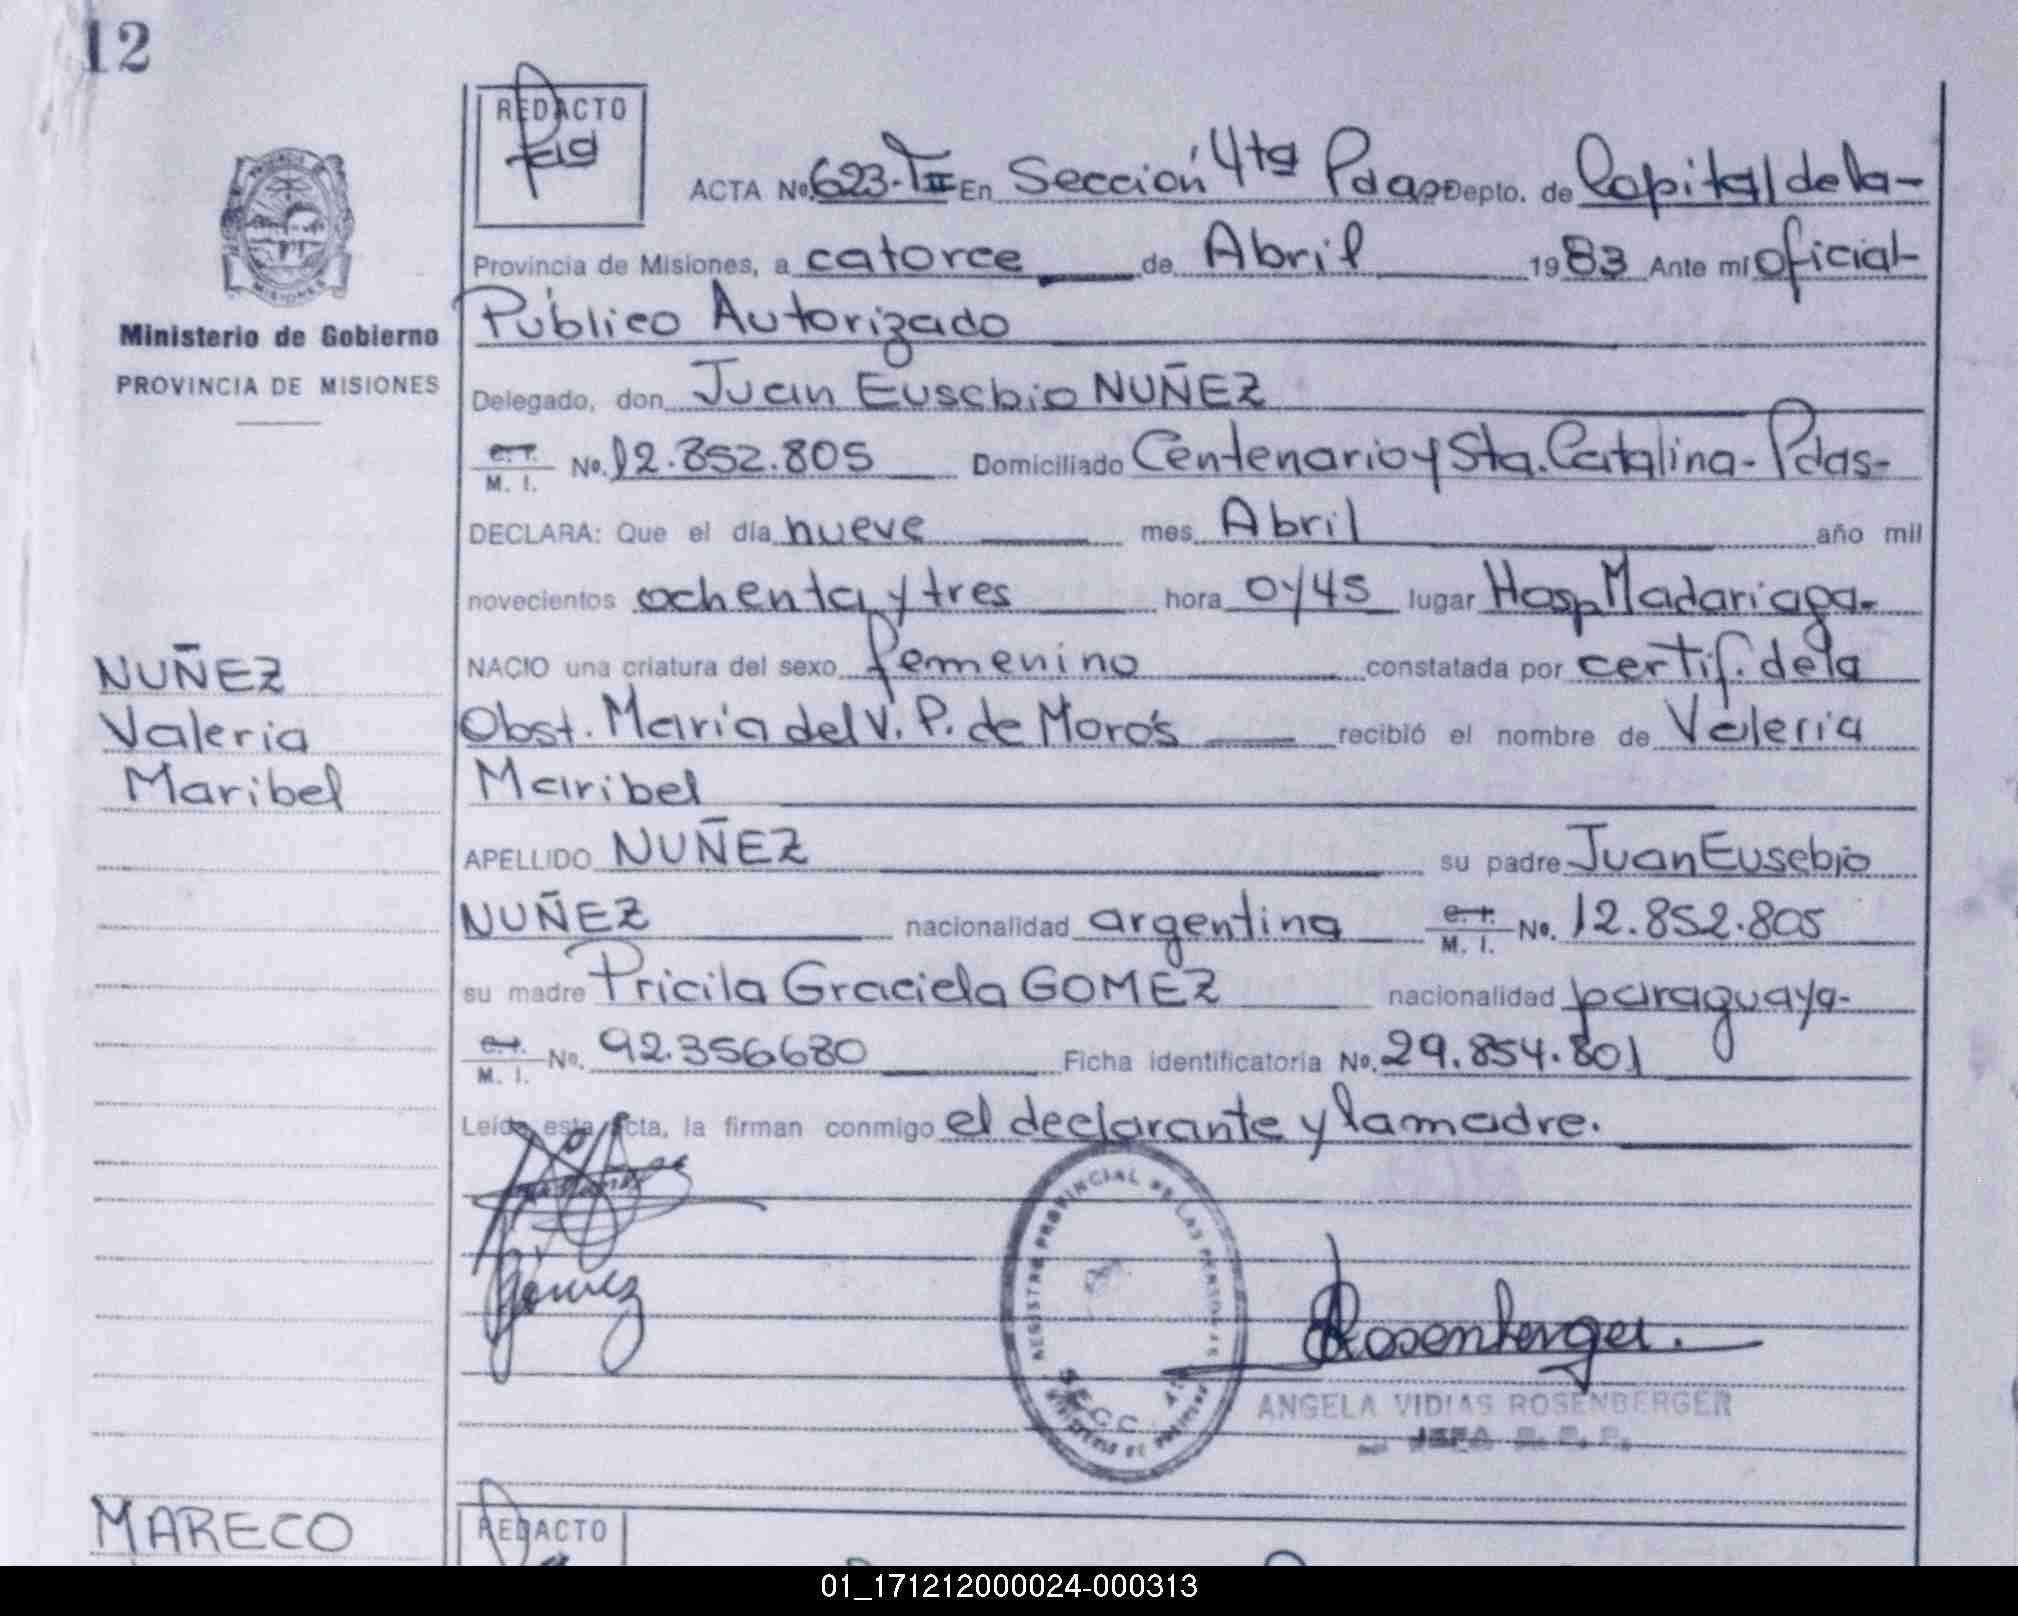 12
REDACTO
ACTA No. 623-TII En Sección 4ta Pdas Depto. de Capital de la-
Provincia de Misiones, a catorce de Abril 1983 Ante mí oficial-
Ministerio de Gobierno
PROVINCIA DE MISIONES
Público Autorizado
Delegado, don Juan Eusebio NUÑEZ
C. I. M. I. No. 12.852.805 Domiciliado Centenario y Sta. Catalina- Pdas-
DECLARA: Que el día nueve mes Abril año mil
novecientos ochenta y tres hora 0y45 lugar Hosp Madariaga-
NACIO una criatura del sexo femenino constatada por certif. de la
Obst. María del V. P. de Morós recibió el nombre de Valeria
Maribel
NUÑEZ
Valeria
Maribel
APELLIDO NUÑEZ su padre Juan Eusebio
NUÑEZ nacionalidad argentina C. I. M. I. No. 12.852.805
su madre Pricila Graciela GOMEZ nacionalidad paraguaya-
C. I. M. I. No. 92.356680 Ficha identificatoria No. 29.854.801
Leída esta acta, la firman conmigo el declarante y la madre.
Gómez
REGISTRO PROVINCIAL DE LAS PERSONAS
SECC. 4ta
Rosenberger.
ANGELA VIDIAS ROSENBERGER
JEFA
MARECO
REDACTO
01_171212000024-000313